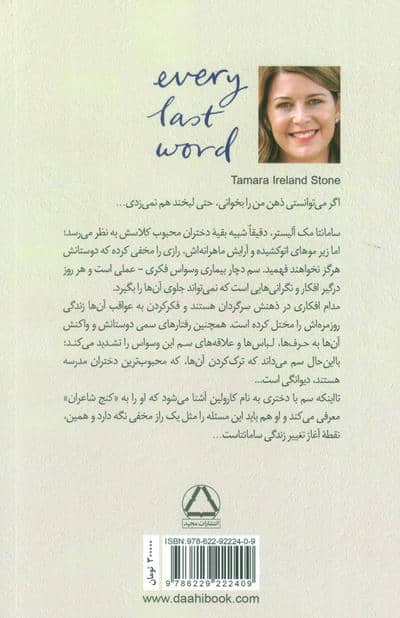 every
last
word
Tamara Ireland Stone
اگر می‌توانستی ذهن من را بخوانی، حتی لبخند هم نمی‌زدی...
سامانتا مک آلیستر، دقیقاً شبیه بقیهٔ دختران محبوب کلاسش به نظر می‌رسد؛
اما زیر موهای اتوکشیده و آرایش ماهرانه‌اش، رازی را مخفی کرده که دوستانش
هرگز نخواهند فهمید. سم دچار بیماری وسواس فکری - عملی است و هر روز
درگیر افکار و نگرانی‌هایی است که نمی‌تواند جلوی آن‌ها را بگیرد.
مدام افکاری در ذهنش سرگردان هستند و فکرکردن به عواقب آن‌ها زندگی
روزمره‌اش را مختل کرده است. همچنین رفتارهای سمی دوستانش و واکنش
آن‌ها به حرف‌ها، لباس‌ها و علاقه‌های سم این وسواس را تشدید می‌کند؛
بااین‌حال سم می‌داند که ترک‌کردن آن‌ها، که محبوب‌ترین دختران مدرسه
هستند، دیوانگی است...
تااینکه سم با دختری به نام کارولین آشنا می‌شود که او را به «کنج شاعران»
معرفی می‌کند و او هم باید این مسئله را مثل یک راز مخفی نگه دارد و همین،
نقطهٔ آغاز تغییر زندگی سامانتاست...
انتشارات مجید
ISBN: 978-622-92224-0-9
9 786229 222409
۳۰۰۰۰۰ تومان
www.daahibook.com